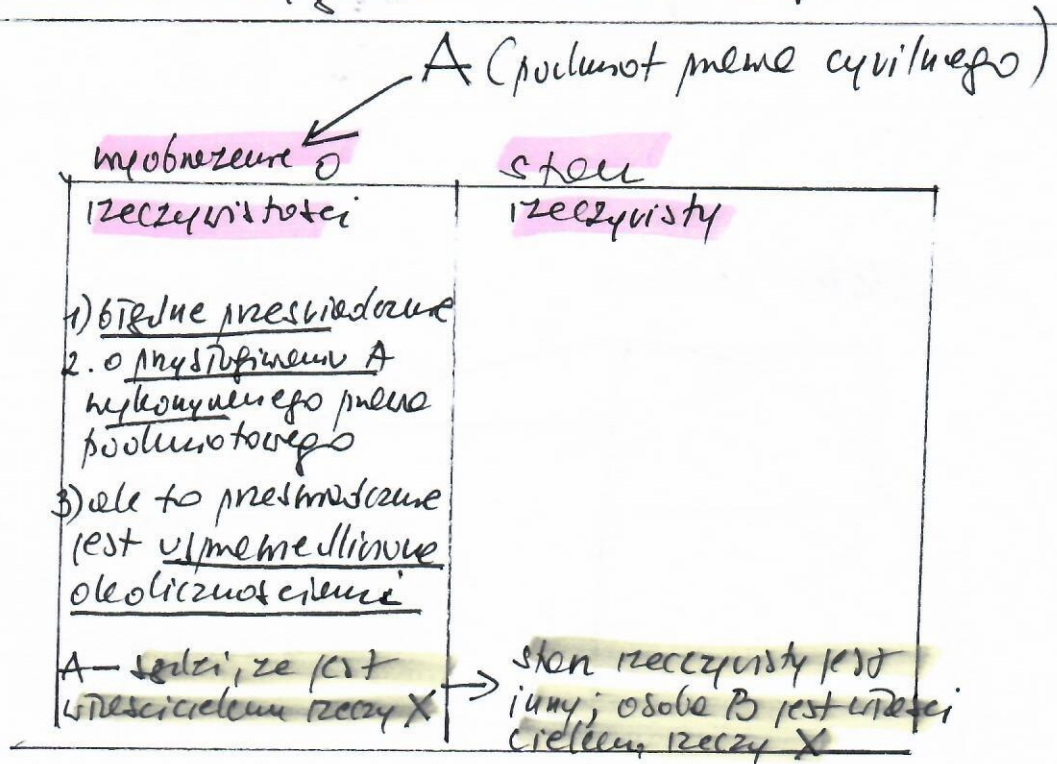 A (podmiot prawa cywilnego)
wyobrażenie o
rzeczywistości
stan
rzeczywisty
1) błędne przeświadczenie
2. o przysługiwaniu A
wykonywanego prawa
podmiotowego
3) ale to przeświadczenie
jest usprawiedliwione
okolicznościami
A — sądzi, że jest
właścicielem rzeczy X
stan rzeczywisty jest
inny; osoba B jest właści
cielem rzeczy X